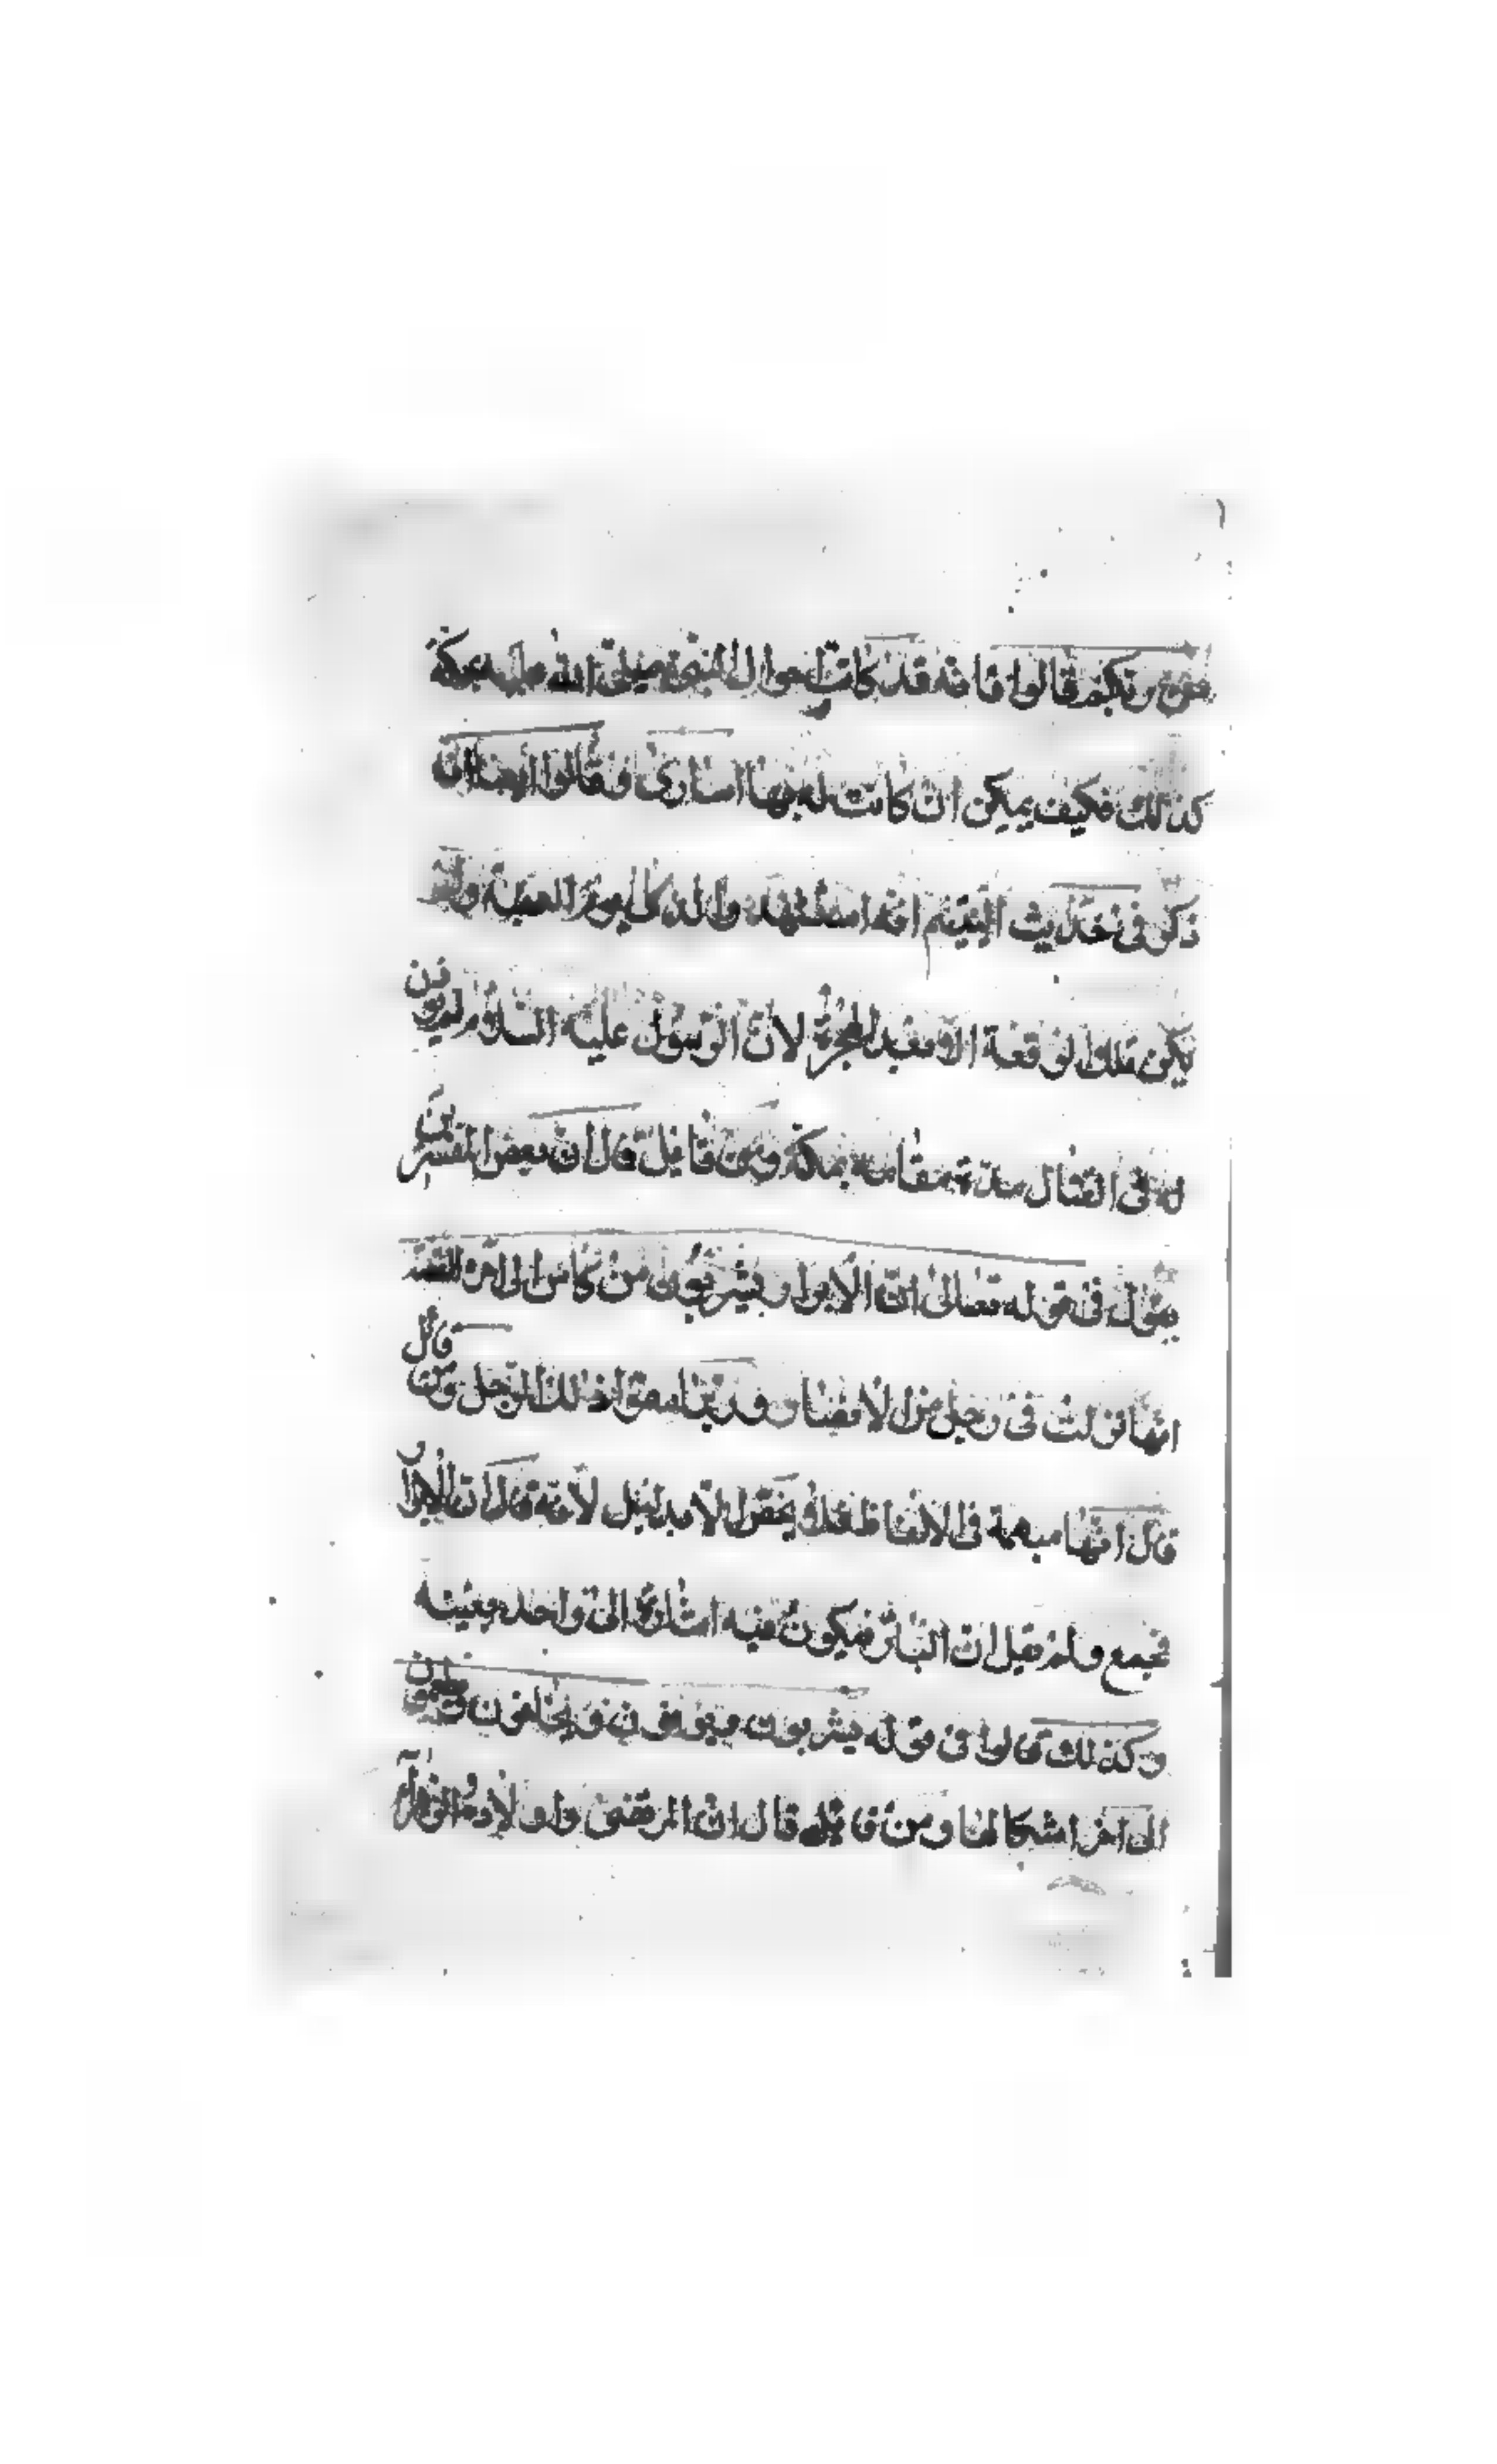 فوق ربكم قالوا فانه قد كانت احوال النبي صلى الله عليه بمكة
كذلك فكيف يمكن ان كانت له بها اسارى وقالوا أيضا ان
ذكر في حديث اليتيم انه استشهد والده يوم
يكن تلك الوقعة الا بعد الهجرة لان الرسول عليه السلام لم يوذن
له في القتال مدة مقامه بمكة ومن قائل قال ان بعض المفسرين
يقول في قوله تعالى ان الابرار يشربون من كاس الى اخر القصة
انها نزلت في رجل من الانصار وربما سموا ذلك الرجل ومن قائل
قال انها مبهمة في الالفاظ فلا الا بدليل لانه قال ان الابرار
فجمع ولم يقل ان البار فيكون فيه اشارة الى واحد بعينه
وكذلك قالوا في قوله يشربون ويوفون ويخافون ويطعمون
الى اخر اشكالها ومن قائل قال ان المرتضى واولاده الزهراء